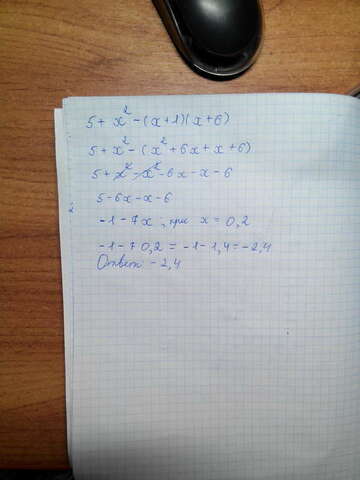 5 + x² - (x+1)(x+6)
5 + x² - (x² + 6x + x + 6)
5 + x² - x² - 6x - x - 6
5 - 6x - x - 6
-1 - 7x, при x = 0,2
-1 - 7 0,2 = -1 - 1,4 = -2,4
Ответ: -2,4